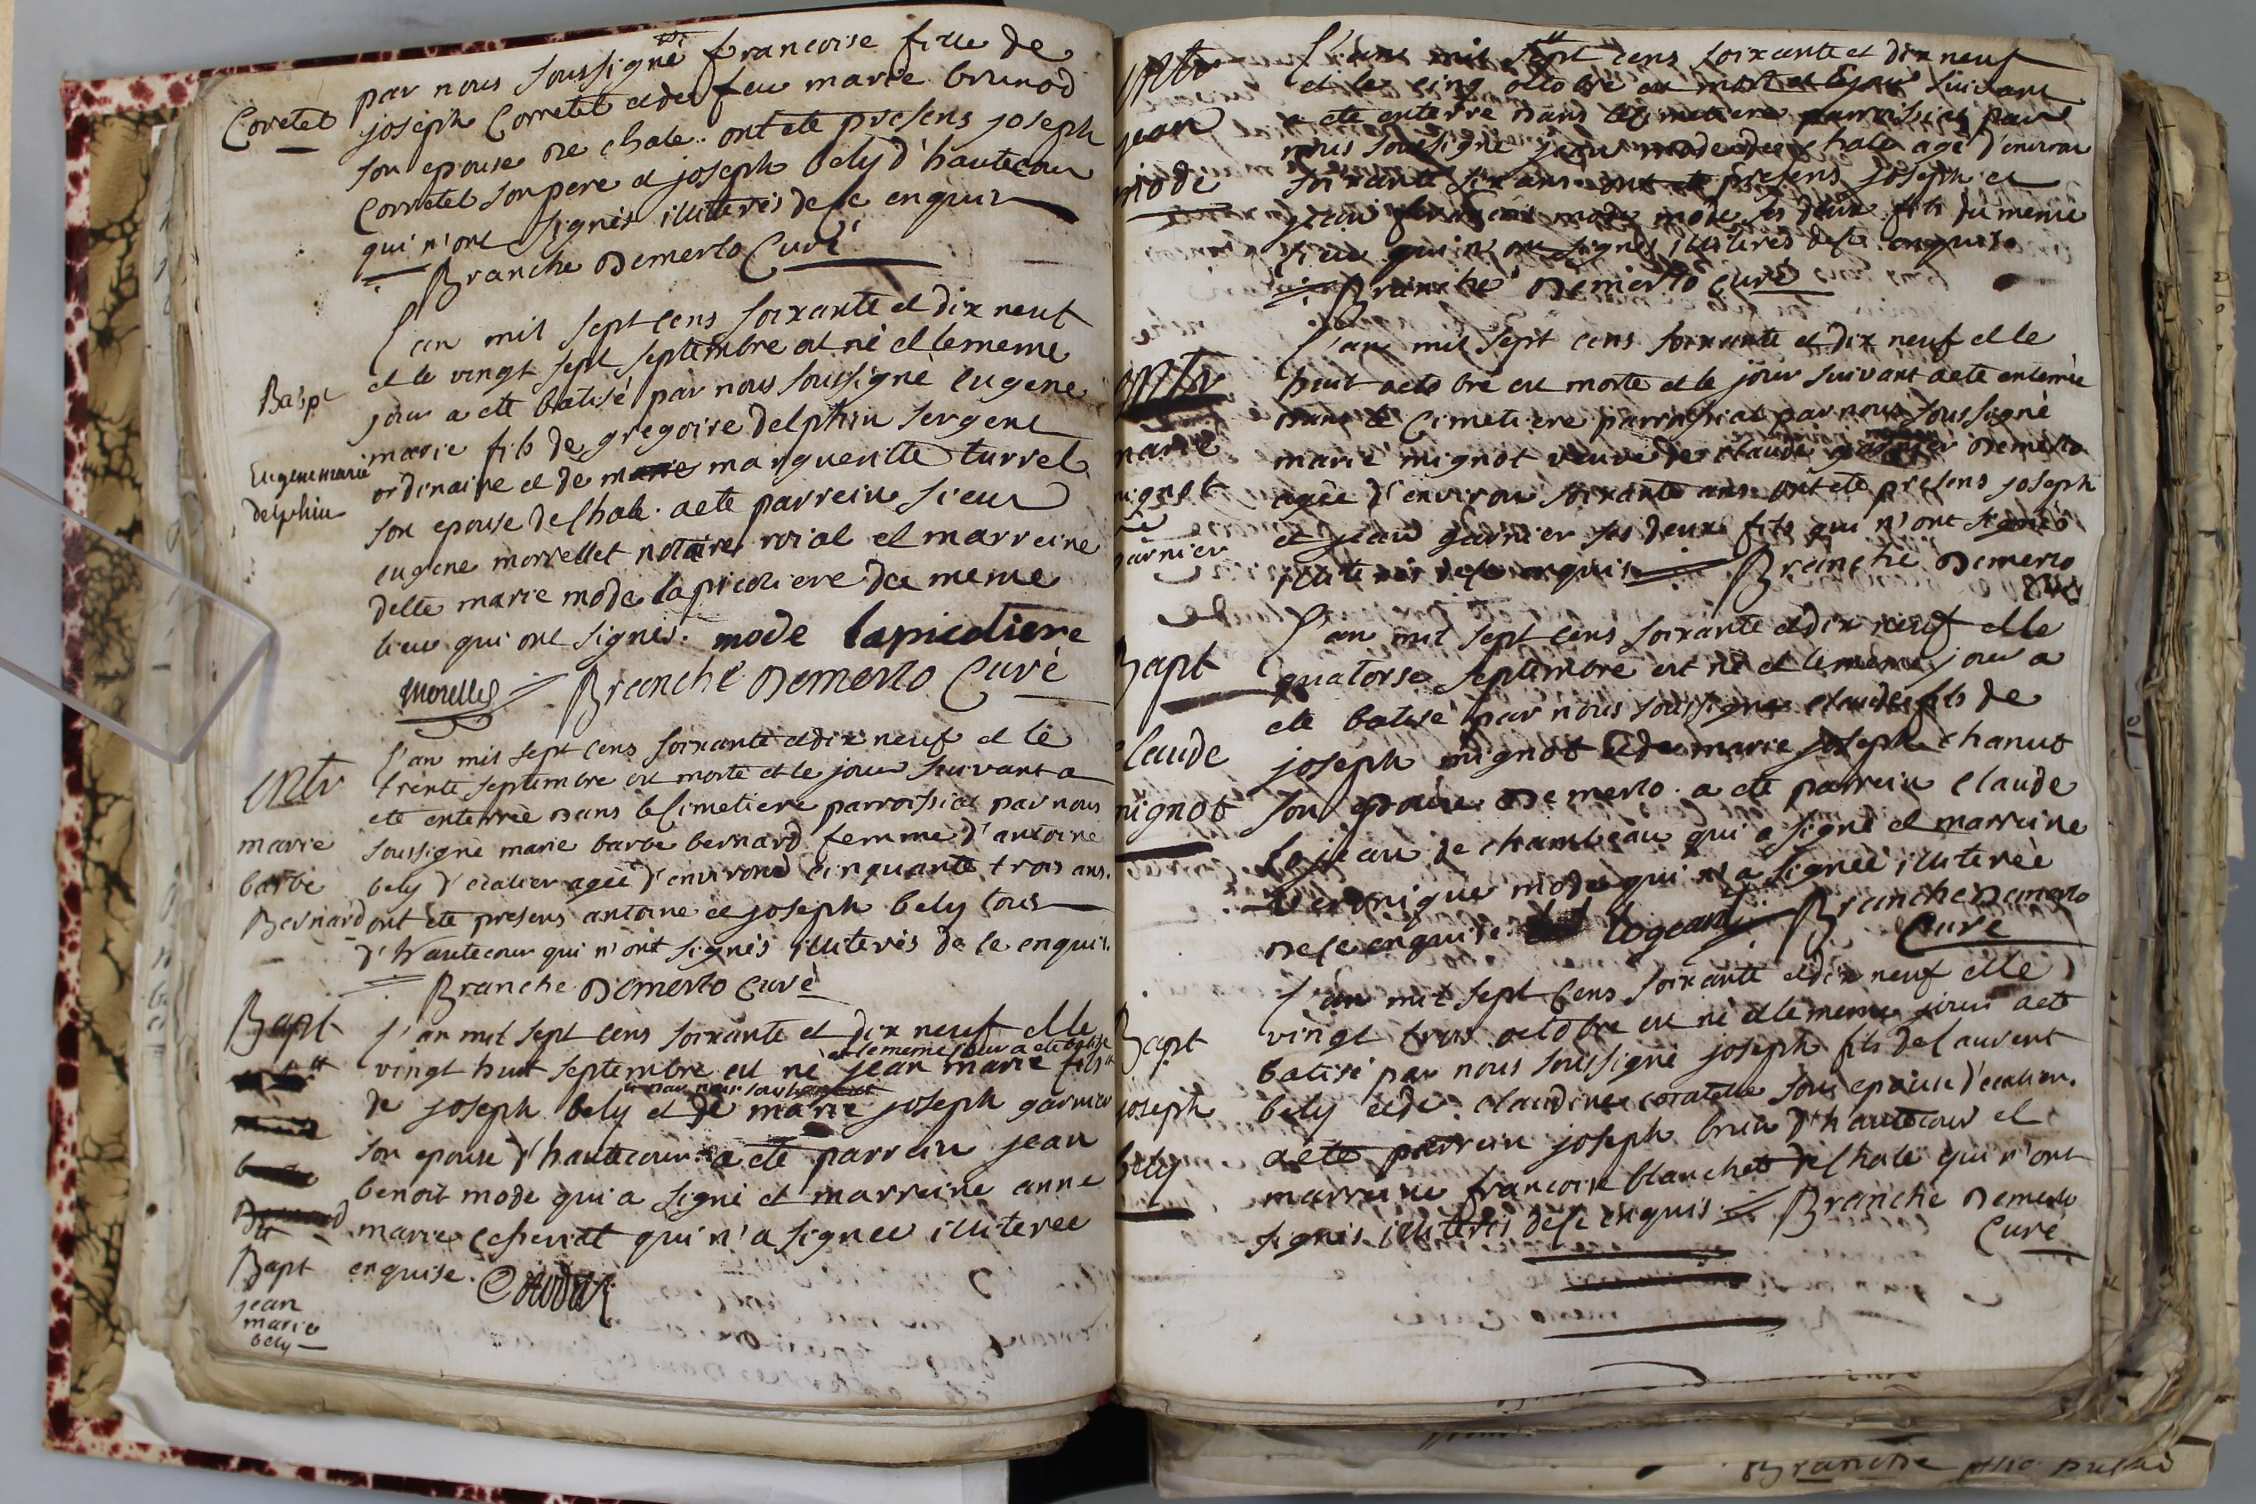 Coretet
par nous soussigné francoise fille de
joseph Corretet et de feu marie brunod
son epouse de chale. ont ete presens joseph
Corretet son pere et joseph bely d'hautecour
qui n'ont signés illiterés de ce enquis
Branche Demerlo Curé
L'an mil sept cens soixante et dix neuf
et le vingt sept septembre est né et le meme
Bapt
jour a ete batisé par nous soussigné Eugene
marie fils de gregoire delphin sergent
Eugene marie
delphin
ordinaire et de marie margueritte turrel
son epouse de chale. a ete parrein sieur
eugene morrellet notaire roial et marreine
delle marie mode lapicotiere du meme
lieu qui ont signés. mode lapicotiere
Morellet Branche Demerlo Curé
L'an mil sept cens soixante et dix neuf et le
enter
trente septembre est morte et le jour suivant a
ete enterrée dans le Cimetiere parroissial par nous
marie
soussigné marie barbe bernard femme d'antoine
barbe
bely d'ecalier agée d'environ cinquante trois ans.
Bernard
ont ete presens antoine et joseph bely tous
d'hautecour qui n'ont signés illiterés de ce enquis.
Branche Demerlo Curé
Bapt
L'an mil sept cens soixante et dix neuf et le
et le meme jour a ete batisé
vingt huit septembre est né jean marie fils
par nous soussigné
de joseph bely et de marie joseph garnier
son epouse d'hautecour a ete parrein jean
benoit mode qui a signé et marreine anne
marie cesseriat qui n'a signee illiteree
du
Bapt
enquise.
jean
marie
bely
enter
L'an mil sept cens soixante et dix neuf
et le cinq octobre est mort et le jour suivant
jean
a ete enterré dans le Cimetiere parroissial par
nous soussigné jean mode de chale agé d'environ
mode
soixante six ans ont ete presens joseph et
jean francois mode ses deux fils du meme
lieu qui n'ont signés illiterés de ce enquis.
Branche Demerlo Curé
L'an mil sept cens soixante et dix neuf et le
enter
huit octobre est morte et le jour suivant a ete enterrée
dans le Cimetiere parroissial par nous soussigné
marie
marie mignot veuve de claude garnier Demerlo
mignot
agée d'environ soixante ans ont ete presens joseph
et jean garnier ses deux fils qui n'ont signés
garnier
illiterés de ce enquis Branche Demerlo
Curé
L'an mil sept cens soixante et dix neuf et le
Bapt
quatorse septembre est né et le meme jour a
ete batisé par nous soussigné claude fils de
claude
joseph mignot et de marie joseph chanut
mignot
son epouse Demerlo. a ete parrein claude
lojean de chambeau qui a signé et marreine
veronique mode qui n'a signée illiterée
de ce enquise. Branche Demerlo
Curé
L'an mil sept cens soixante et dix neuf et le
Bapt
vingt trois octobre est né et le meme jour a ete
batisé par nous soussigné joseph fils de laurent
joseph
bely et de claudine coratelle son epouse d'ecalier.
bely
a ete parrein joseph brun d'hautecour et
marreine francoise blanchet de chale qui n'ont
signés illiterés de ce enquis Branche Demerlo
Curé
Branche